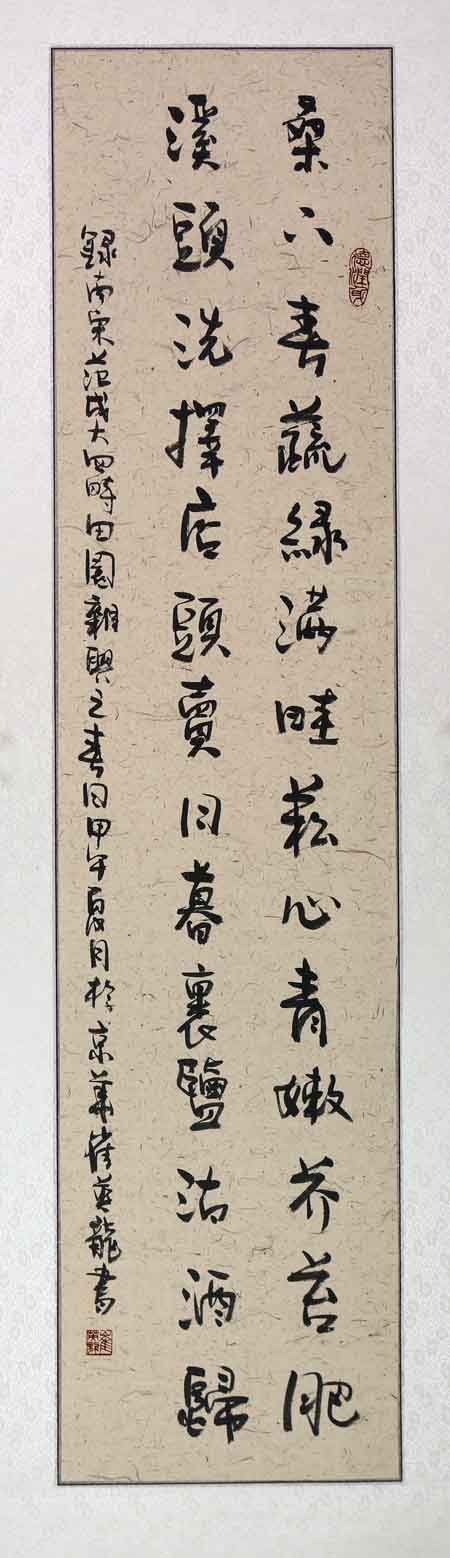 德潤身
桑下春蔬綠滿畦菘心青嫩芥苔肥
溪頭洗擇店頭賣日暮裹鹽沽酒歸
錄南宋范成大四時田園雜興之春日甲午夏月於京華崔英龍書